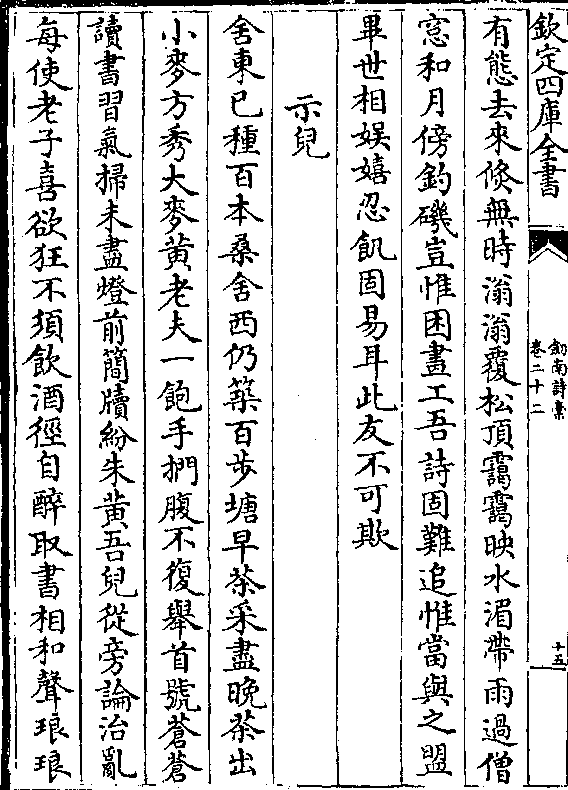 欽定四庫全書
劍南詩稾
卷二十二
十五
有態去來倐無時滃滃覆松頂靄靄映水湄帶雨過僧
窓和月傍釣磯豈惟困畫工吾詩固難追惟當與之盟
畢世相娱嬉忍飢固易耳此友不可欺
示兒
舍東已種百本桑舍西仍築百步塘早茶采盡晚茶出
小麥方秀大麥黄老夫一飽手捫腹不復舉首號蒼蒼
讀書習氣掃未盡燈前簡牘紛朱黄吾兒從旁論治亂
每使老子喜欲狂不須飲酒徑自醉取書相和聲琅琅